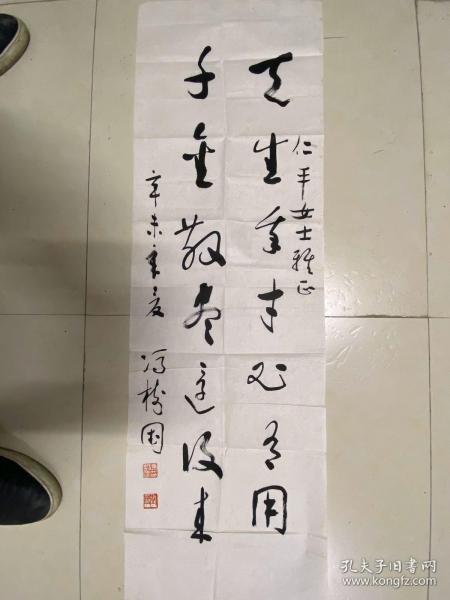 天生我才必有用
仁平女士雅正
千金散尽还复来
辛未夏 冯国
孔夫子旧书网
www.kongfz.com